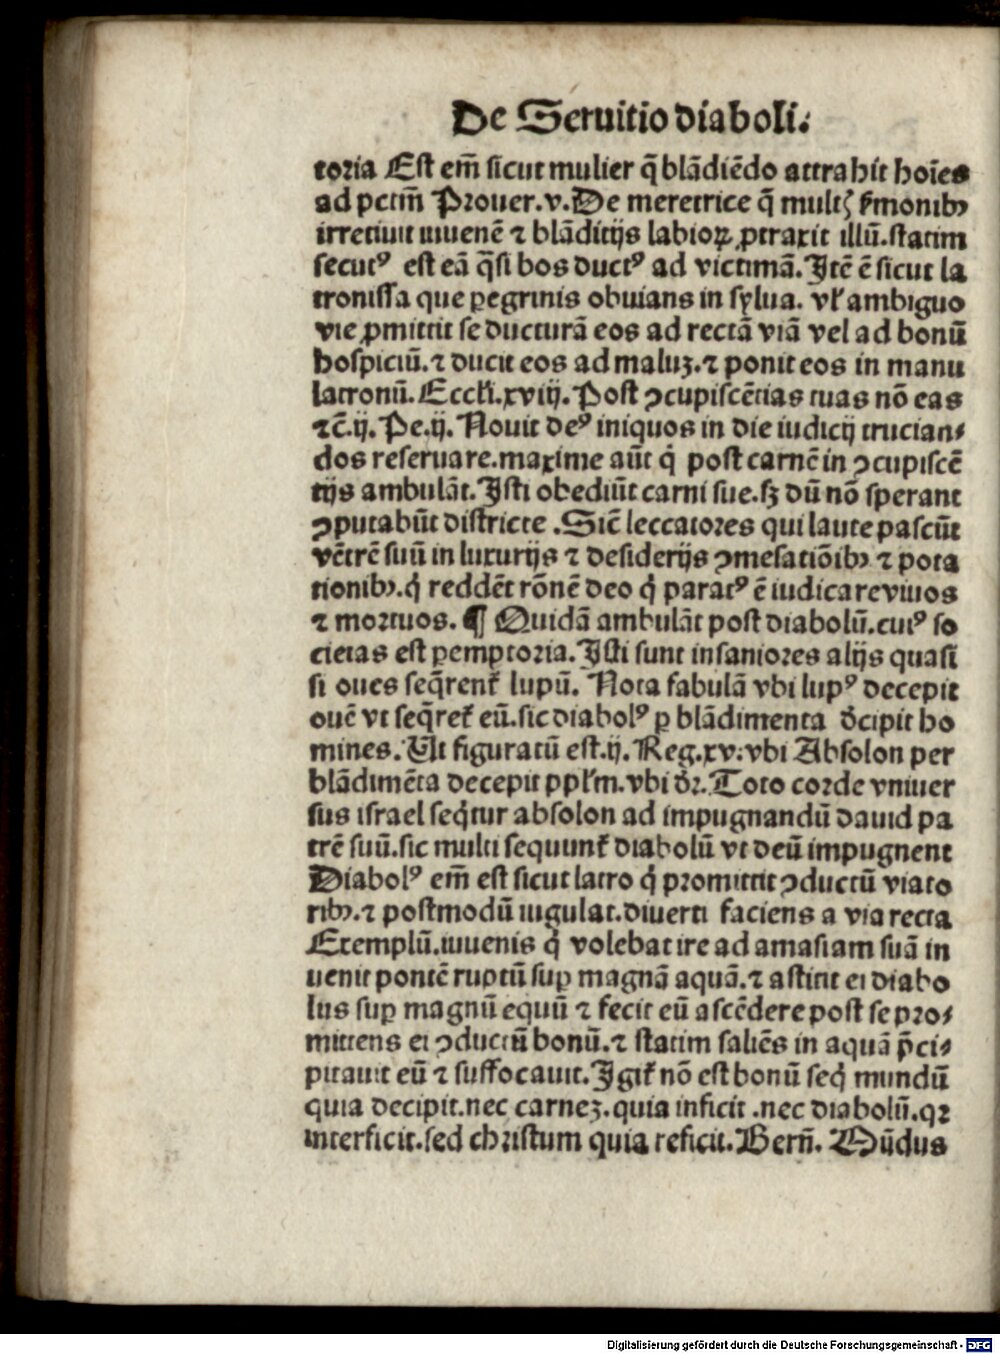 De Seruitio diaboli.
toria Est em̄ sicut mulier q̄ blādiēdo attrahit hoīes
ad pctm̄ Prouer.v. De meretrice q̄ multꝭ ẜmonibꝫ
irretiuit iuuenē ⁊ blāditijs labioꝝ ꝓtraxit illū.statim
secutꝰ est eā q̄si bos ductꝰ ad victimā. Itē ē sicut la
tronissa que ꝑegrinis obuians in sylua. vl̓ ambiguo
vie ꝓmittit se ducturā eos ad rectā viā vel ad bonū
hospiciū.⁊ ducit eos ad maluꝫ.⁊ ponit eos in manu
latronū. Eccli̓.xviij. Post ꝯcupiscētias tuas nō eas
⁊c̄.ij. Pe.ij. Nouit deꝰ iniquos in die iudicij crucian⸗
dos reseruare.maxime aūt q̇ post carnē in ꝯcupiscē
tijs ambulāt. Isti obediūt carni sue.sꝫ dū nō sperant
ꝯputabūt districte . Sic̄ leccatores qui laute pascūt
vētrē suū in luxurijs ⁊ desiderijs ꝯmesatiōibꝫ ⁊ pota
tionibꝫ.q̇ reddēt rōnē deo q̇ paratꝰ ē iudicare viuos
⁊ mortuos. ¶ Quidā ambulāt post diabolū.cuiꝰ so
cietas est ꝑemptoria. Isti sunt insaniores alijs quasi
si oues seq̄rent̓ lupū. Nota fabulā vbi lupꝰ decepit
ouē vt seq̄ret̓ eū.sic diabolꝰ ꝑ blādimenta d̓cipit ho
mines. Ut figuratū est.ij. Reg.xv.vbi Absolon per
blādimēta decepit ppl̓m.vbi d̓r. Toto corde vniuer
sus israel seq̇tur absolon ad impugnandū dauid pa
trē suū.sic multi sequunt̓ diabolū vt deū impugnent
Diabolꝰ em̄ est sicut latro q̇ promittit ꝯductū viato
ribꝫ.⁊ postmodū iugulat.diuerti faciens a via recta
Exemplū.iuuenis q̇ volebat ire ad amasiam suā in
uenit pontē ruptū suꝑ magnā aquā.⁊ astitit ei diabo
lus suꝑ magnū equū ⁊ fecit eū ascēdere post se pro⸗
mittens ei ꝯductū bonū.⁊ statim saliēs in aquā p̄ci⸗
pitauit eū ⁊ suffocauit. Igit̓ nō est bonū seq̇ mundū
quia decipit.nec carneꝫ.quia inficit .nec diabolū.qꝛ
interficit.sed christum quia reficit. Bern̄. Mūdus
Digitalisierung gefördert durch die Deutsche Forschungsgemeinschaft - DFG